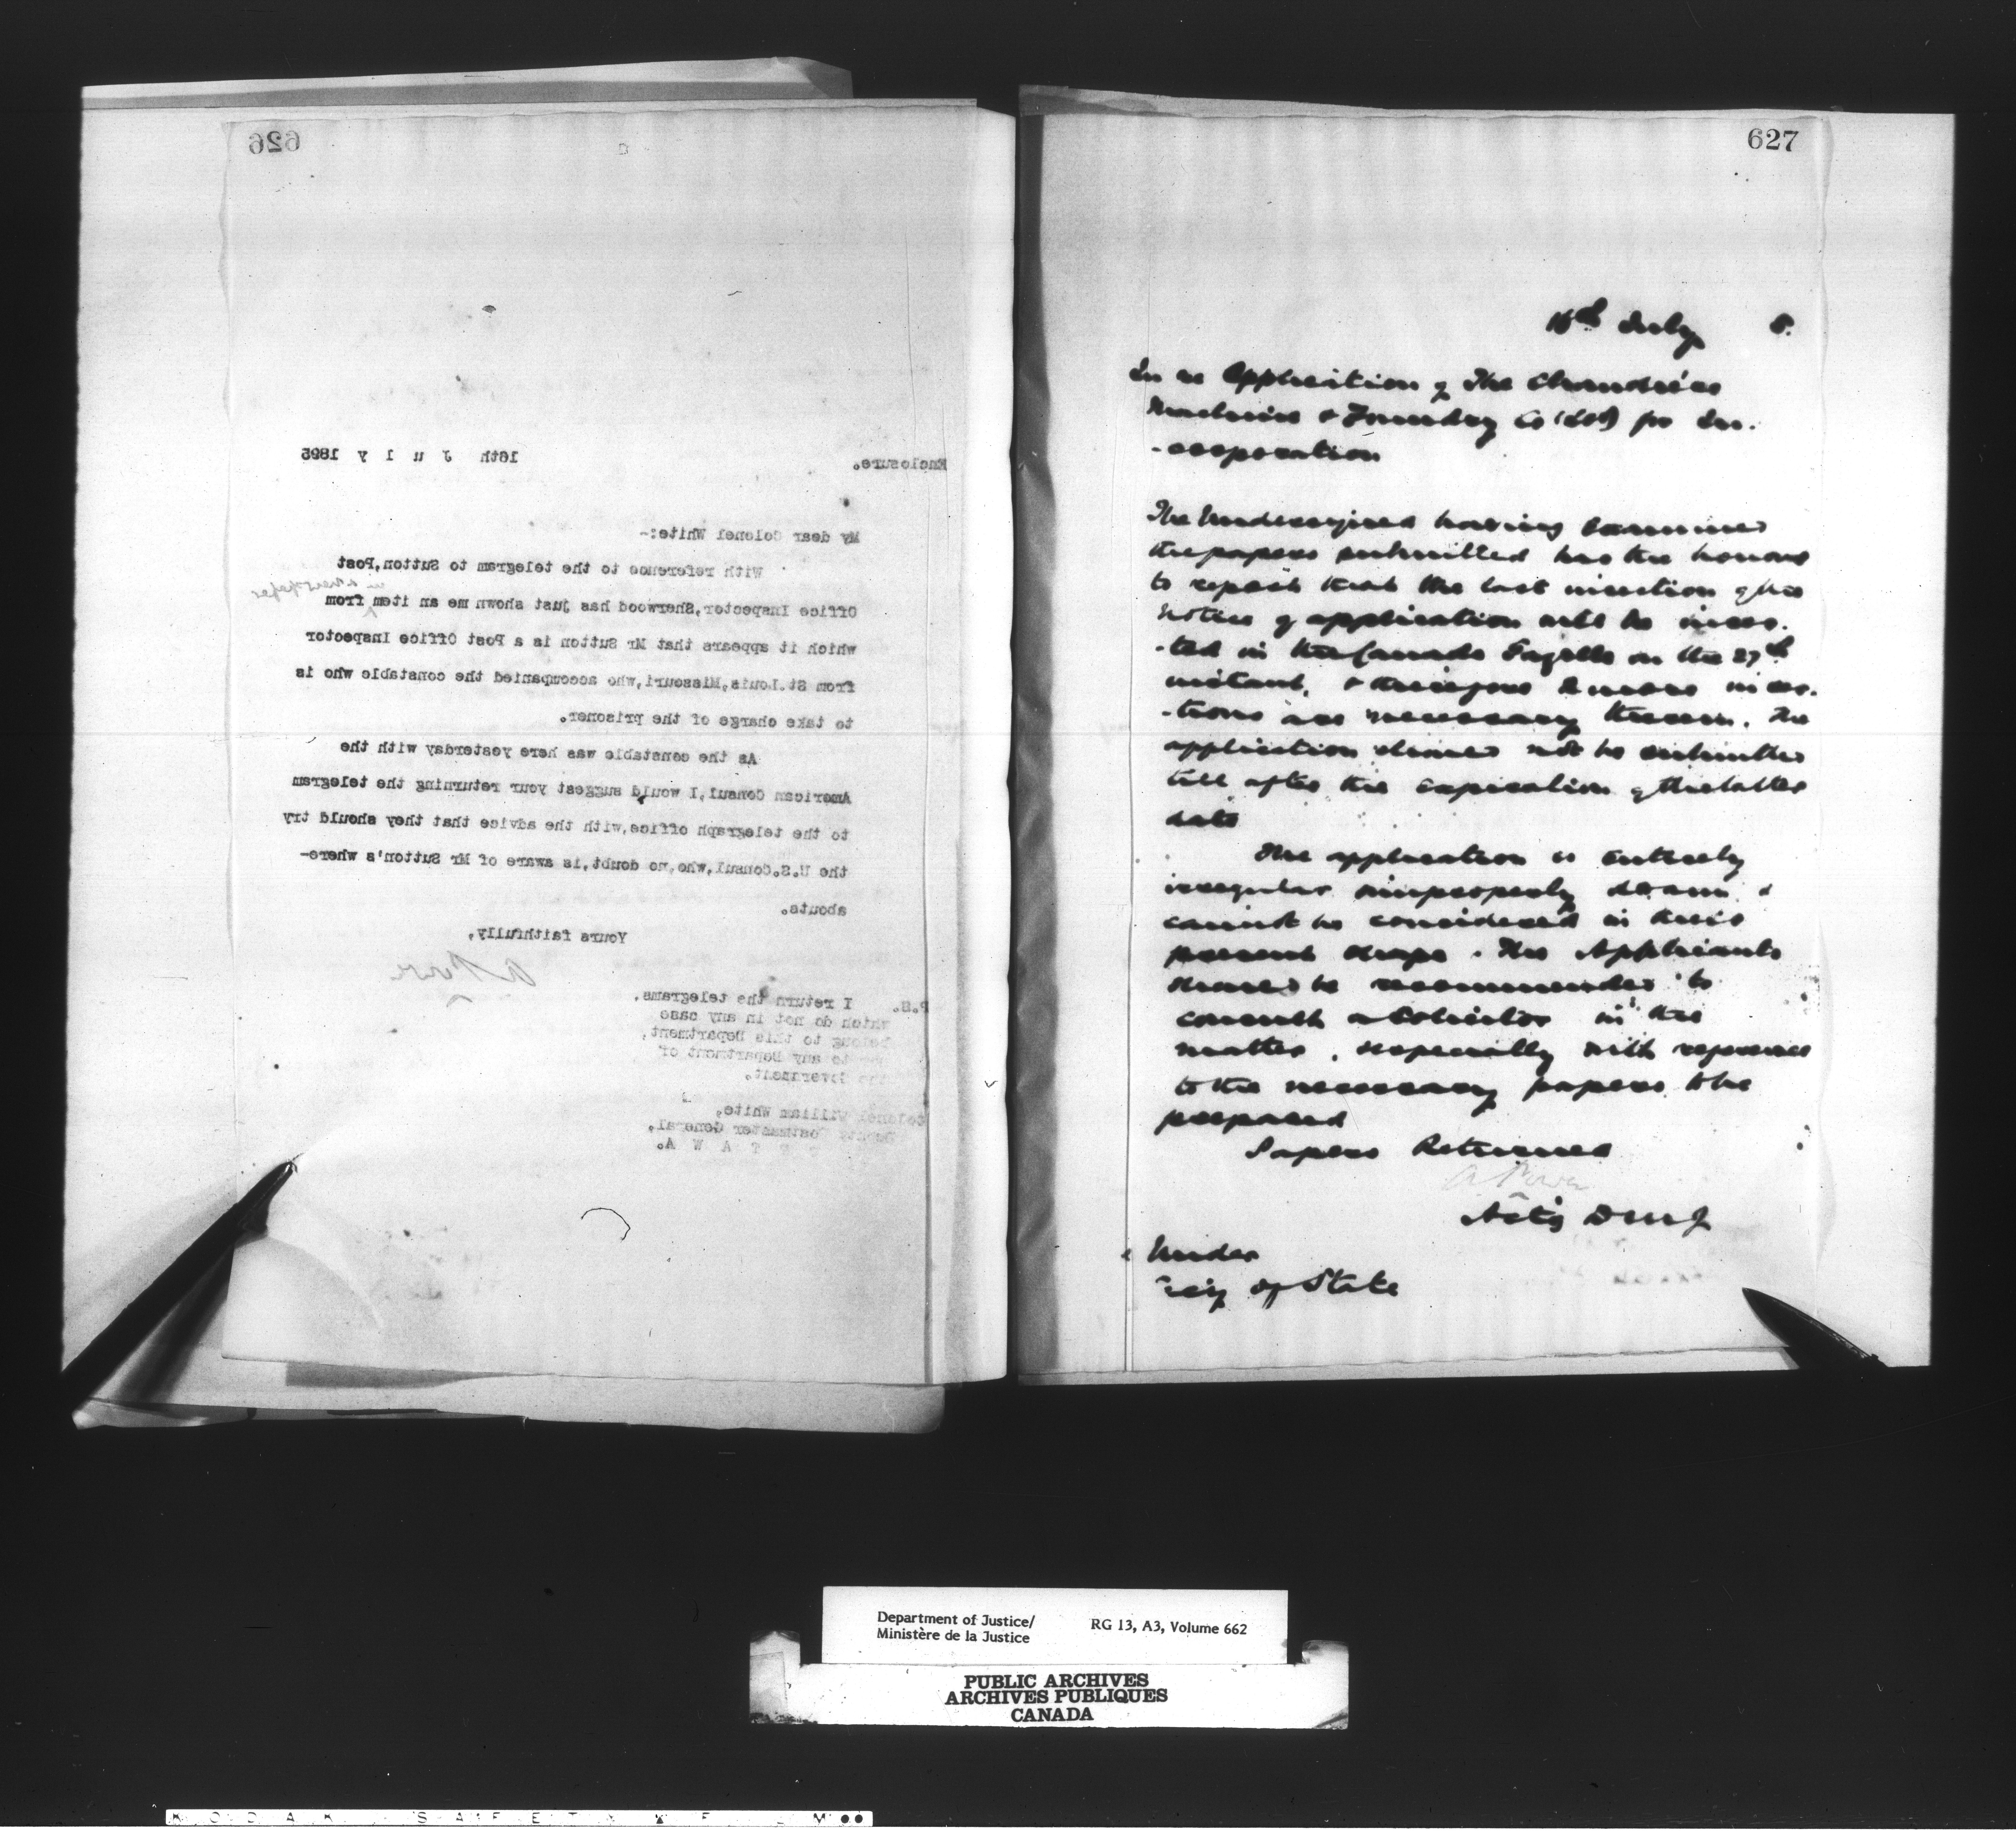 626
Enclosure.
16th J u l y 1895
My dear Colonel White:-
With reference to the telegram to Sutton,Post
in a newspaper
Office Inspector,Sherwood has just shown me an item from
which it appears that Mr Sutton is a Post Office Inspector
from St.Louis,Missouri,who accompanied the constable who is
to take charge of the prisoner.
As the constable was here yesterday with the
American Consul,I would suggest your returning the telegram
to the telegraph office,with the advice that they should try
the U.S.Consul,who,no doubt,is aware of Mr Sutton's where-
abouts.
Yours faithfully,
A Power
P.S. I return the telegrams,
which do not in any case
belong to this Department,
to any Department of
the Government.
Colonel William White,
Deputy Postmaster General,
O T T A W A.
627
16th July 5.
In re Application of The
Machine & Foundry Co (Ltd) for In-
-corporation
The Undersigned having examined
the papers submitted has the honour
to report that the last insertion of the
notice of application will be inser-
-ted in the Canada Gazette on the 27th
instant, & therefore 2 more inser-
-tions are necessary therein. The
application should not be submitted
till after the expiration of the latter
date
The application is entirely
irregular & improperly drawn &
cannot be considered in this
present shape. The Applicants
should be recommended to
consult a Solicitor in the
matter, especially with reference
to the necessary papers to be
prepared
Papers Returned
A Power
Act'g D M J
Under
Secy of State
Department of Justice/
Ministère de la Justice
RG 13, A3, Volume 662
PUBLIC ARCHIVES
ARCHIVES PUBLIQUES
CANADA
K O D A K S A F E T Y F L M